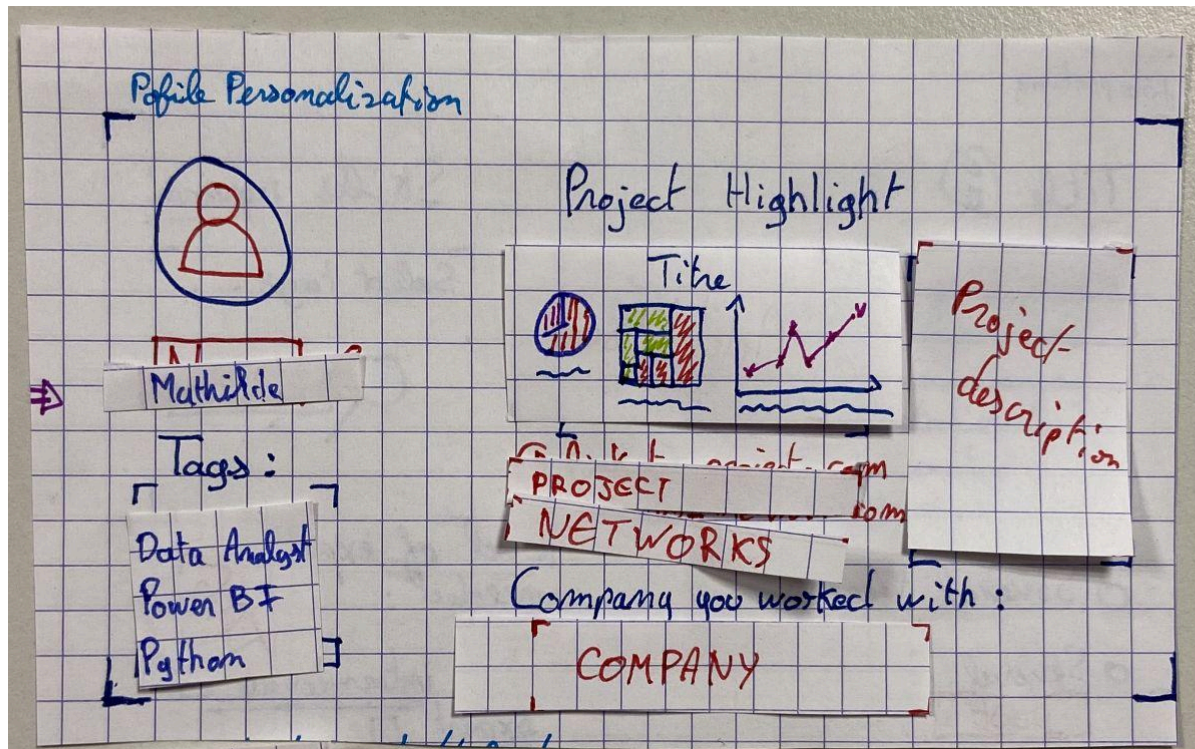 Pofile Personalization
Mathilde
Tags:
Data Analyst
Power BI
Python
Project Highlight
Title
Project
description
PROJECT
NETWORKS
Company you worked with:
COMPANY